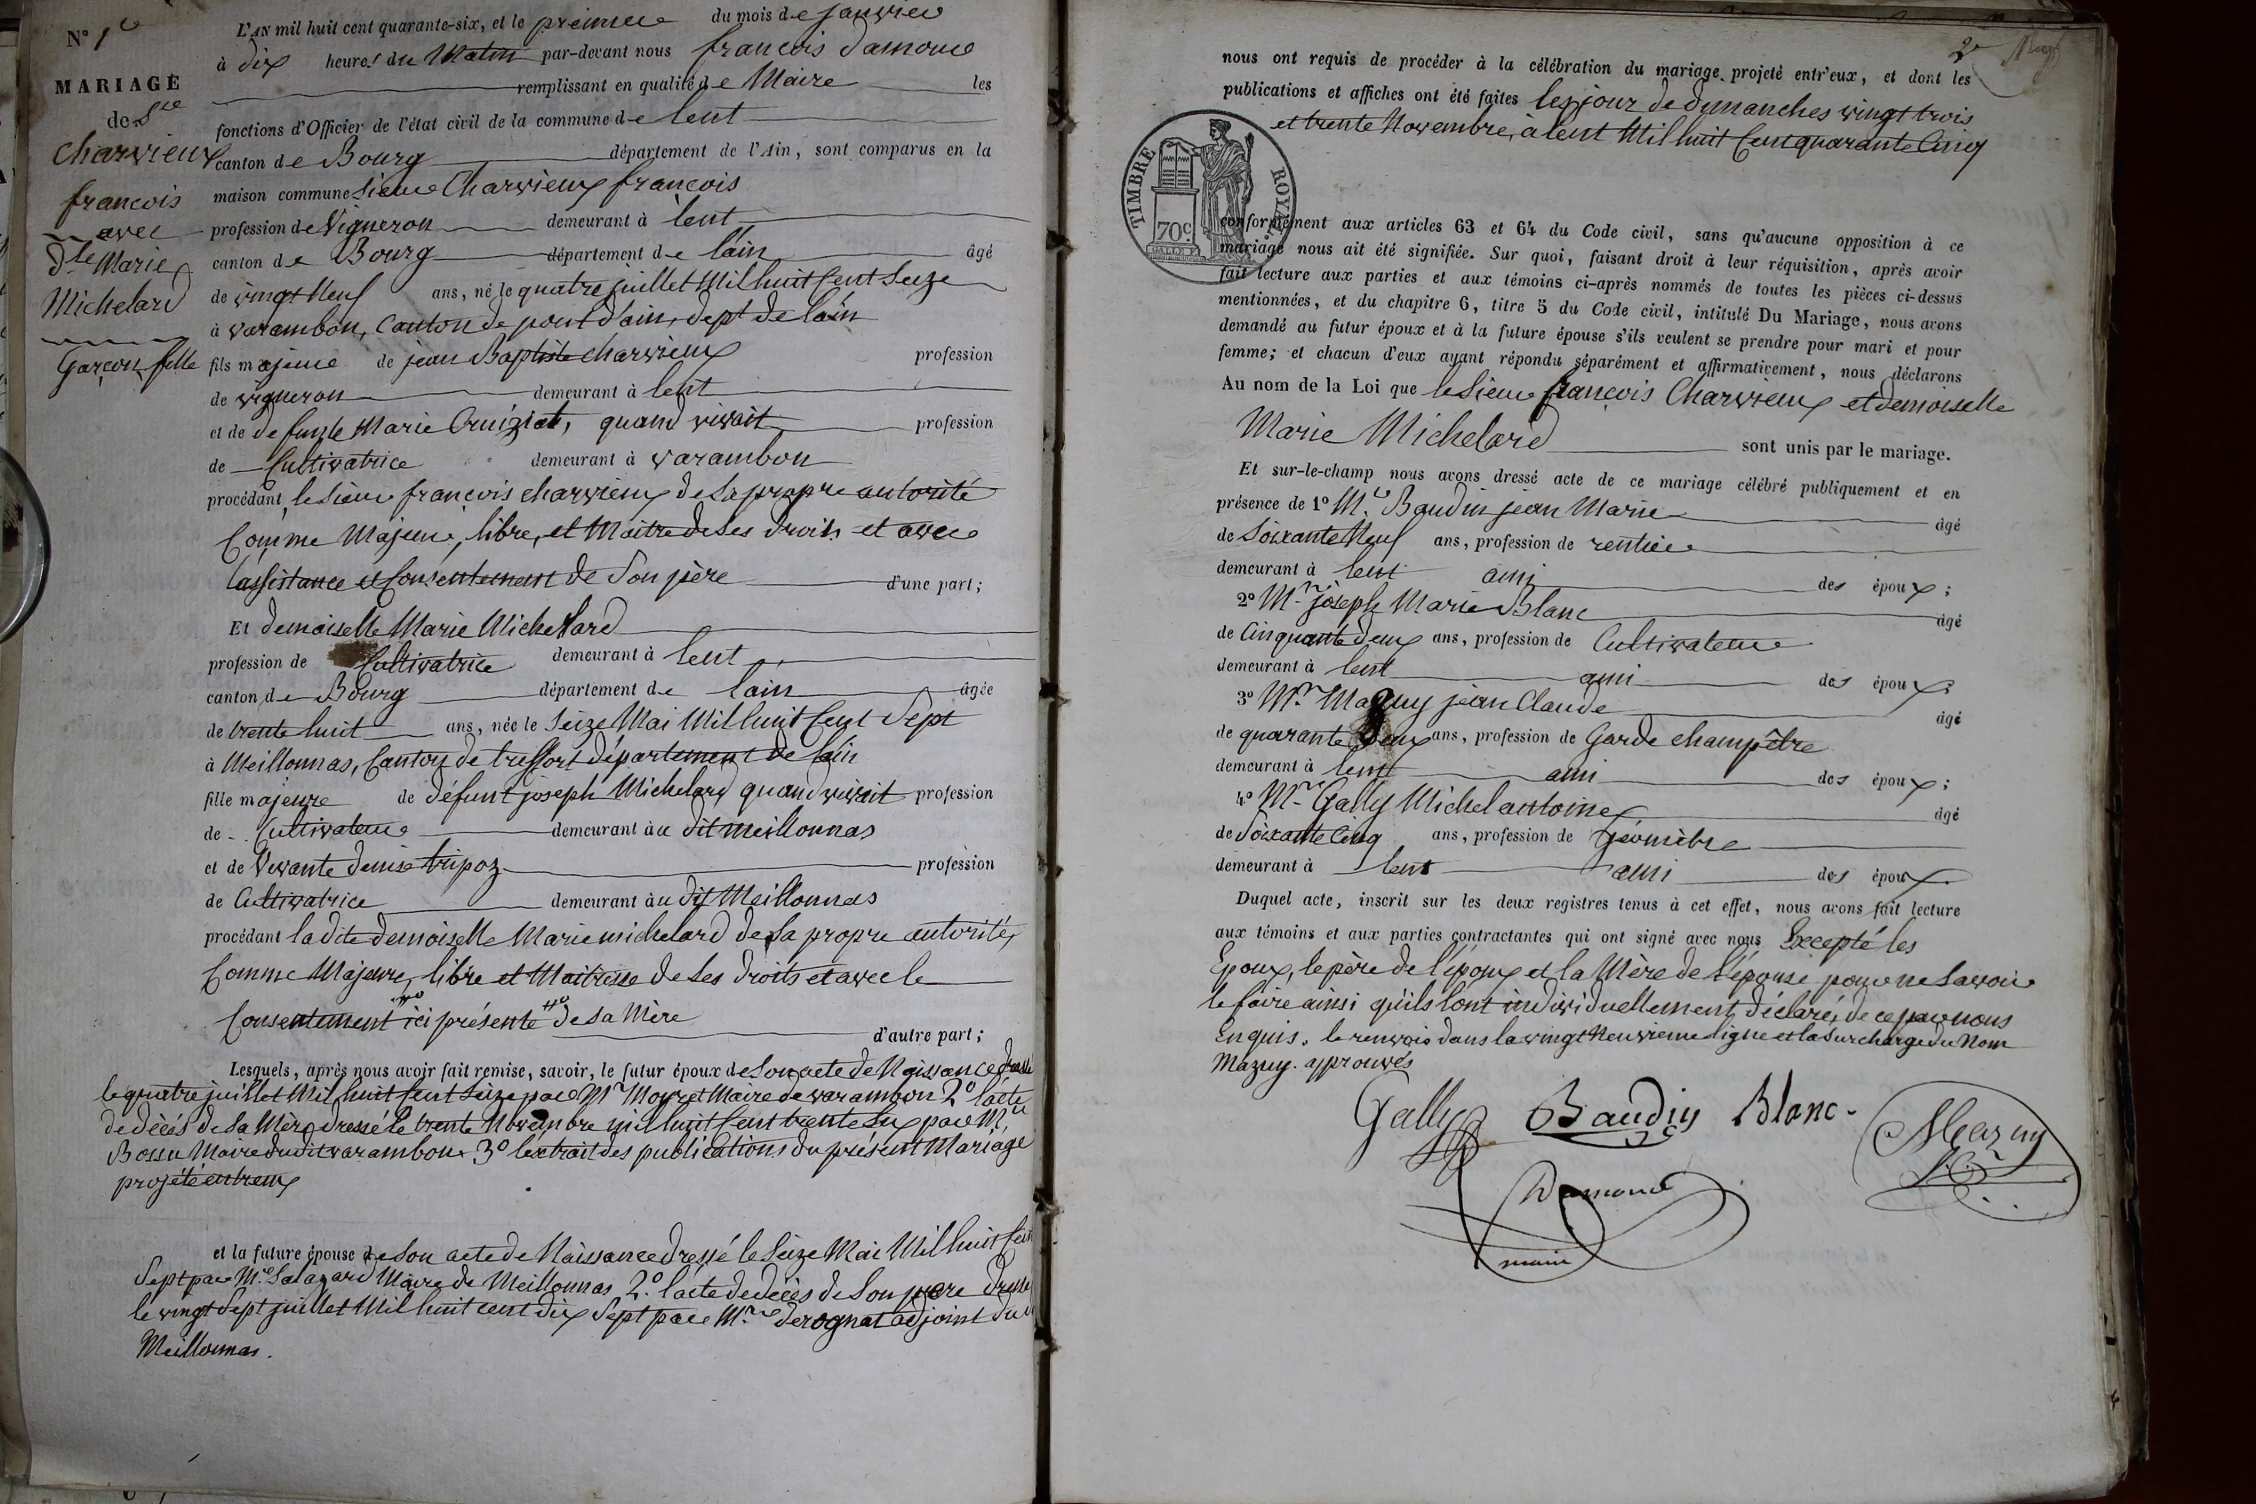 N° 1er
MARIAGE
de Sr
Charvieux
françois
avec
Dlle Marie
Michelard
Garçon, fille
L'AN mil huit cent quarante-six, et le premier du mois de janvier
à dix heures du Matin par-devant nous françois Damour
remplissant en qualité de Maire les
fonctions d'Officier de l'état civil de la commune de lent
canton de Bourg département de l'Ain, sont comparus en la
maison commune sieur Charvieux françois
profession de Vigneron demeurant à lent
canton de Bourg département de l'ain âgé
de vingt Neuf ans, né le quatre juillet Mil huit Cent Seize
à varambon, Canton de pont d'ain, dept de l'ain
fils majeur de jean Baptiste charvieux profession
de vigneron demeurant à lent
et de defunte Marie Cruiziat, quand vivait profession
de Cultivatrice demeurant à varambon
procédant, le sieur françois charvieux de sa propre autorité
Comme Majeur, libre, et Maitre de ses droits et avec
l'assistance et Consentement de Son père d'une part;
Et demoiselle Marie Michelard
profession de Cultivatrice demeurant à lent
canton de Bourg département de l'ain âgée
de trente huit ans, née le Seize Mai Mil huit Cent Sept
à Meillonnas, Canton de treffort département de l'ain
fille majeure de défunt joseph Michelard quand vivait profession
de Cultivateur demeurant àu dit meillonnas
et de Vivante denise tripoz profession
de Cultivatrice demeurant àu dit Meillonnas
procédant la dite demoiselle Marie michelard de sa propre autorité,
Comme Majeure, libre et Maitresse de Ses droits et avec le
Consentement ici présente de sa Mère
d'autre part;
Lesquels, après nous avoir fait remise, savoir, le futur époux de Son acte de Naissance dressé
le quatre juillet Mil huit Cent Seize par Mr Moyret Maire de varambon 2° l'acte
de décés de Sa Mère dressé le trente Novembre mil huit Cent trente Six par Mr
Bossu Maire dudit varambon 3° l'extrait des publications du présent Mariage
projété entr'eux
et la future épouse de Son acte de Naissance dressé le Seize Mai Mil huit Cent
Sept par Mr Salazard Maire de Meillonnas 2° l'acte de décés de Son père dressé
le vingt Sept juillet Mil huit cent dix Sept par Mr derognat adjoint du dt
Meillonnas.
2e
nous ont requis de procéder à la célébration du mariage projeté entr'eux, et dont les
publications et affiches ont été faites les jour de dimanches vingt trois
et trente Novembre, à lent Mil huit Cent quarante Cinq
TIMBRE ROYAL
70c
conformément aux articles 63 et 64 du Code civil, sans qu'aucune opposition à ce
mariage nous ait été signifiée. Sur quoi, faisant droit à leur réquisition, après avoir
fait lecture aux parties et aux témoins ci-après nommés de toutes les pièces ci-dessus
mentionnées, et du chapitre 6, titre 5 du Code civil, intitulé Du Mariage, nous avons
demandé au futur époux et à la future épouse s'ils veulent se prendre pour mari et pour
femme; et chacun d'eux ayant répondu séparément et affirmativement, nous déclarons
Au nom de la Loi que le Sieur françois Charvieux et demoiselle
Marie Michelard sont unis par le mariage.
Et sur-le-champ nous avons dressé acte de ce mariage célébré publiquement et en
présence de 1° Mr Baudin jean Marie âgé
de Soixante Neuf ans, profession de rentier
demeurant à lent ami des époux;
2° Mr joseph Marie Blanc âgé
de Cinquante deux ans, profession de Cultivateur
demeurant à lent ami des époux;
3° Mr Mazuy jean Claude âgé
de quarante deux ans, profession de Garde champêtre
demeurant à lent ami des époux;
4° Mr Gally Michel antoine âgé
de Soixante Cinq ans, profession de géomètre
demeurant à lent ami des époux
Duquel acte, inscrit sur les deux registres tenus à cet effet, nous avons fait lecture
aux témoins et aux parties contractantes qui ont signé avec nous Excepté les
Epoux, le père de l'époux et la Mère de l'épouse pour ne Savoir
le faire ainsi qu'ils l'ont individuellement déclaré, de ce par nous
Enquis. le renvois dans la vingt Neuvieme ligne et la Surcharge du Nom
Mazuy. approuvés
Gally Baudin Blanc
Mazuy
Damour
maire